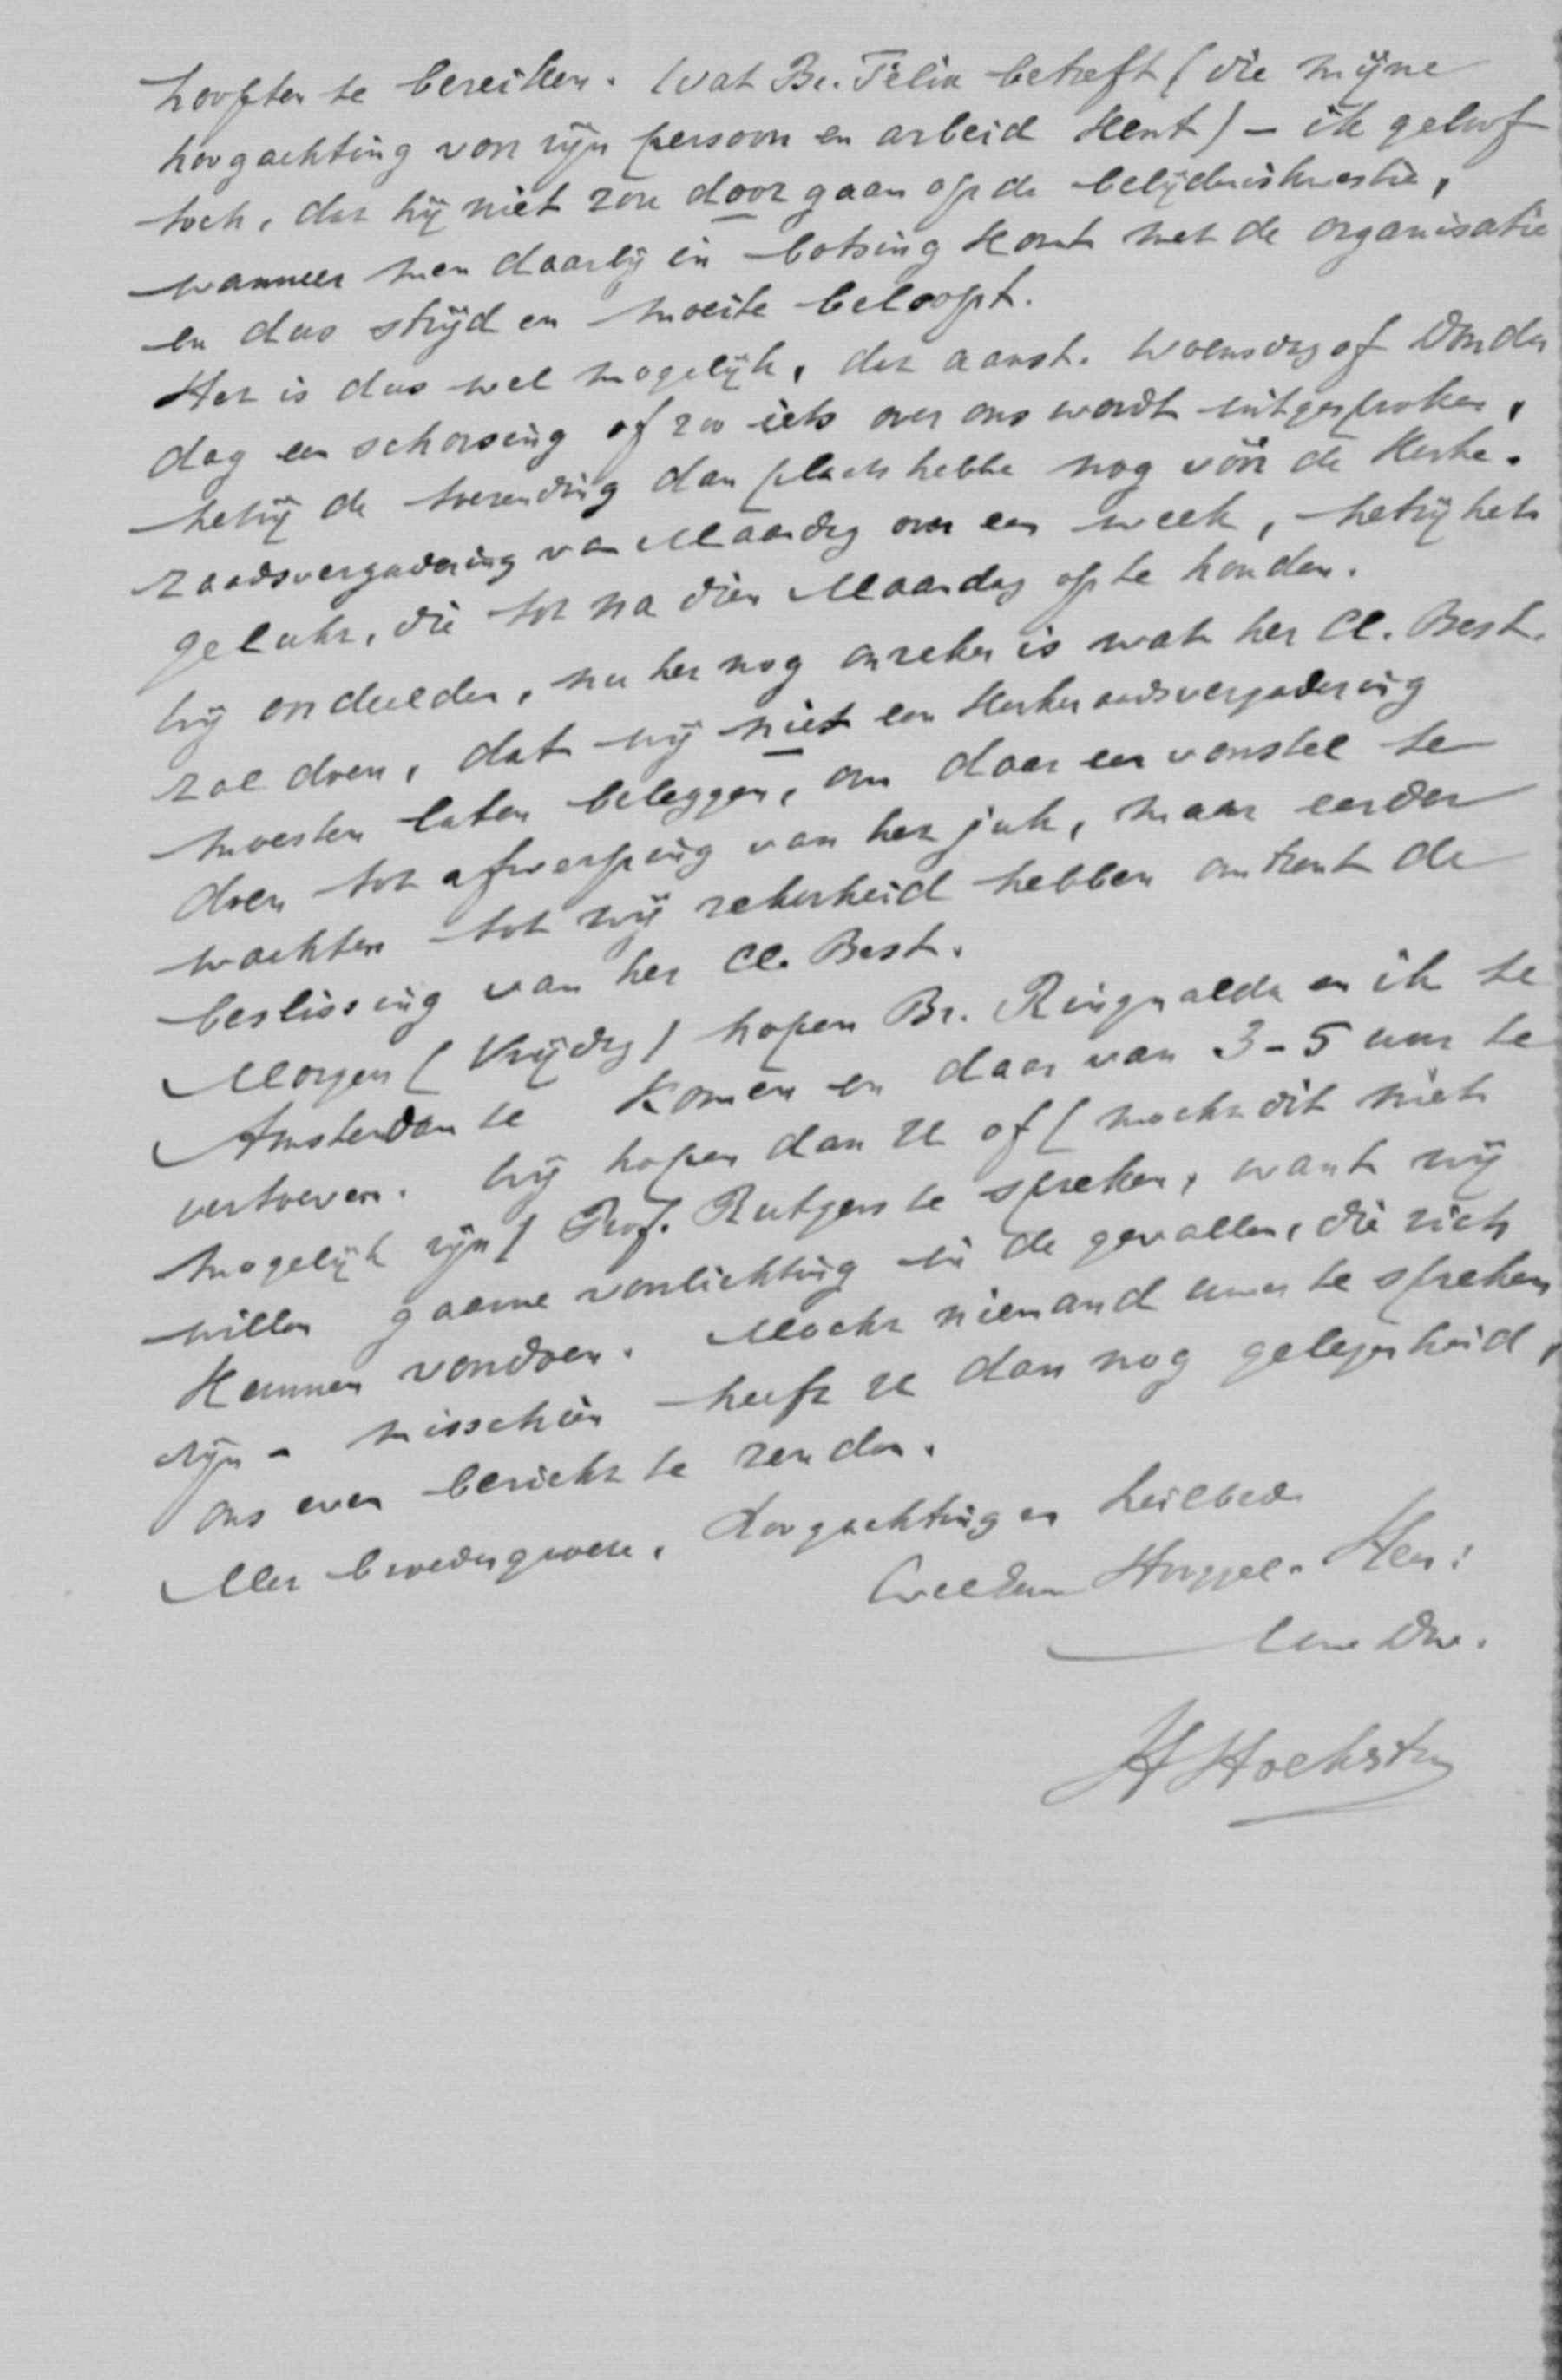 hoopten te bereiken. Wat Br. Felix betreft (die mijne
hoogachting voor zijn persoon en arbeid kent) – ik geloof
toch, dat hij niet zou doorgaan op de belijdeniskwestie,
wanneer men daarbij in botsing komt met de organisatie
en dus strijd en moeite beloopt.
Het is dus wel mogelijk, dat aanst. Woensdag of Donder
dag een schorsing of zoo iets over ons wordt uitgesproken,
hetzij de toezending dan plaats hebbe nog vóór de Kerke-
raadsvergadering van Maandag over een week, hetzij het
gelukt, die tot na dien Maandag op te houden.
Wij oordeelden, nu het nog onzeker is wat het Cl. Best.
zal doen, dat wij niet een Kerkeraadsvergadering
moesten laten beleggen, om daar een voorstel te
doen tot afwerping van het juk, maar eerder
wachten tot wij zekerheid hebben omtrent de
beslissing van het Cl. Best.
Morgen (Vrijdag) hopen Br. Ringnalda en ik te
Amsterdam te komen en daar van 3-5 uur te
vertoeven. Wij hopen dan U of (mocht dit niet
mogelijk zijn) Prof. Rutgers te spreken, want wij
willen gaarne voorlichting in de gevallen, die zich
kunnen voordoen. Mocht niemand uwer te spreken
zijn – misschien heeft U dan nog gelegenheid,
ons even bericht te zenden.
Met broedergroete, Hoogachting en heilbede
Hooggel. Heer:
Uw Dw.
H Hoekstra